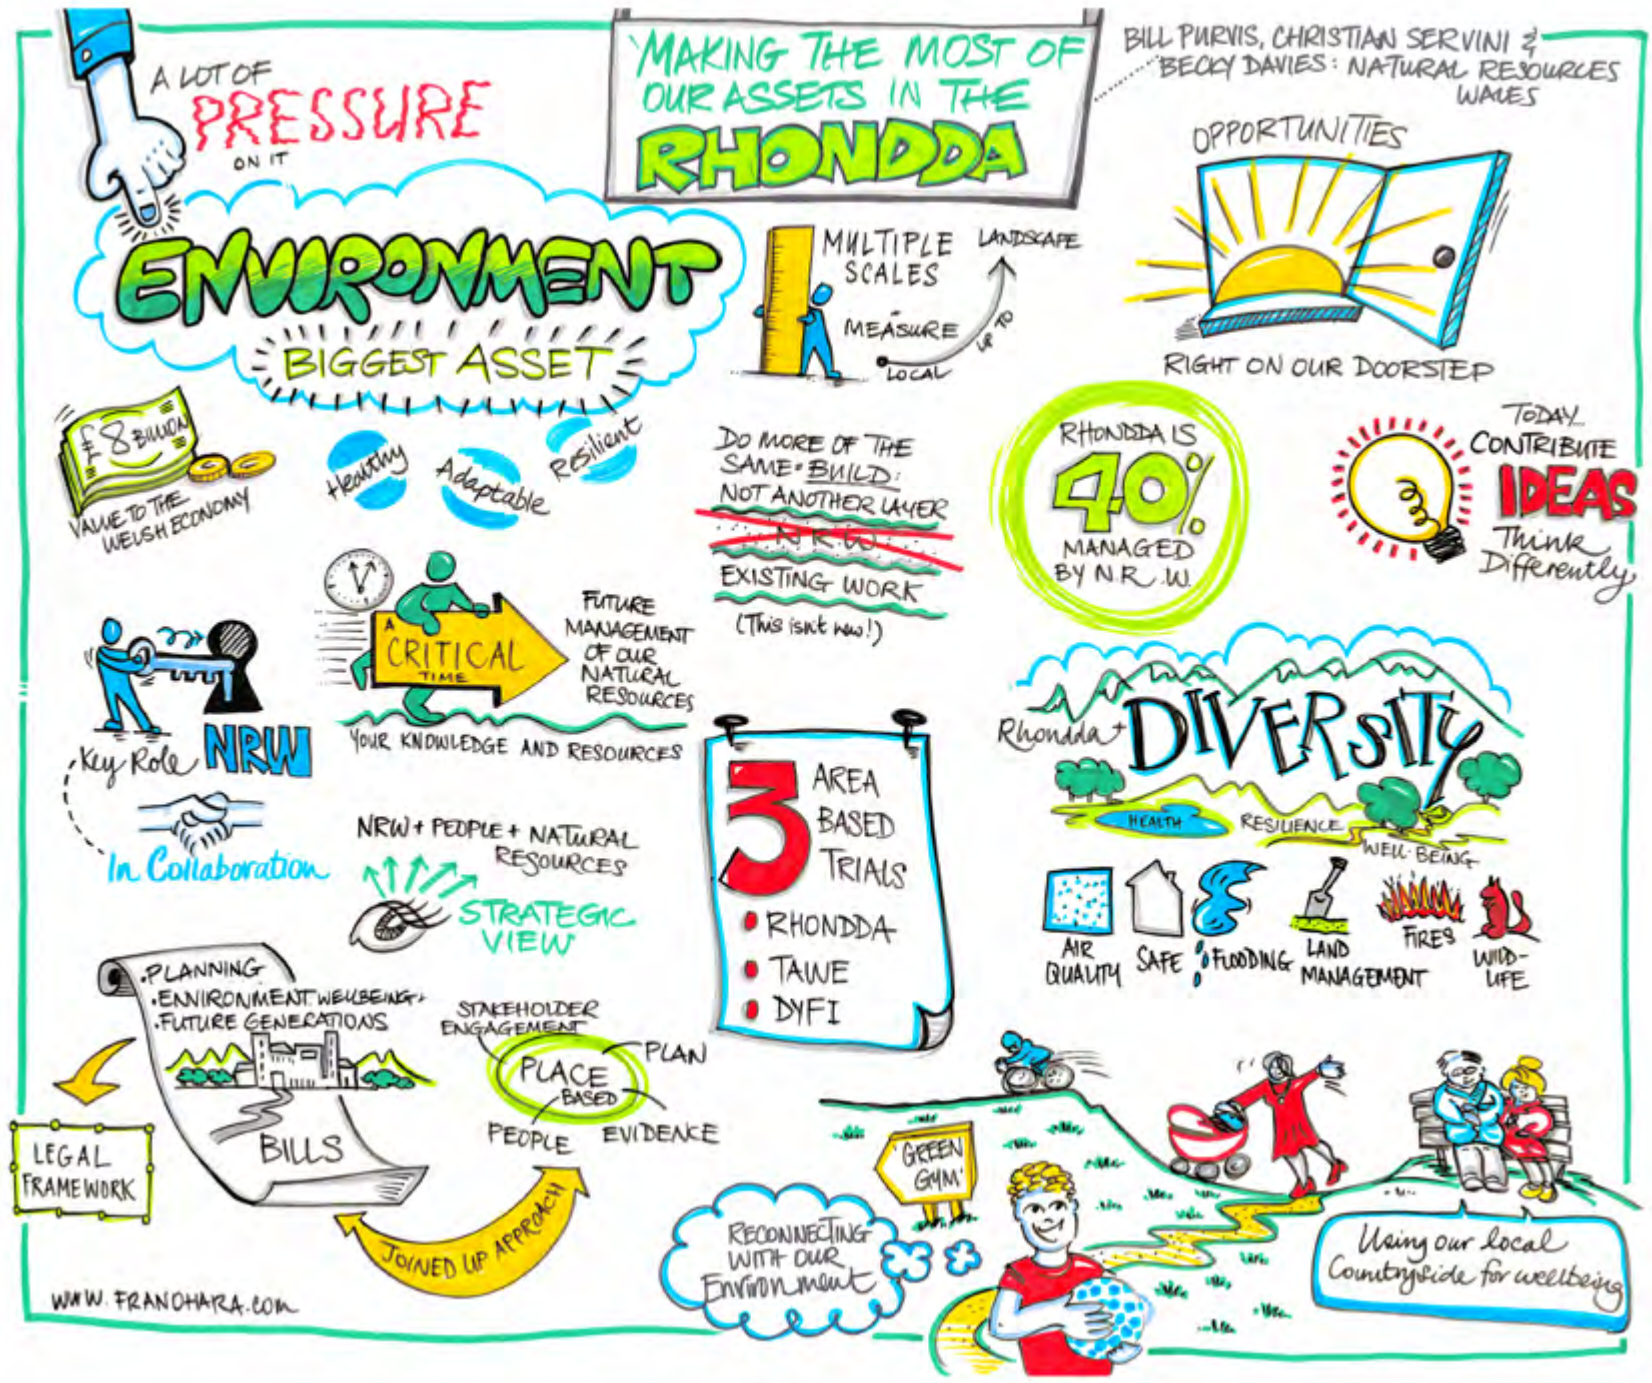 'MAKING THE MOST OF
OUR ASSETS IN THE
RHONDDA
BILL PURVIS, CHRISTIAN SERVINI &
BECKY DAVIES: NATURAL RESOURCES
WALES
A LOT OF
PRESSURE
ON IT
ENVIRONMENT
BIGGEST ASSET
£8 BILLION
VALUE TO THE
WELSH ECONOMY
Healthy
Adaptable
Resilient
MULTIPLE
SCALES
MEASURE
LOCAL
UP TO
LANDSCAPE
OPPORTUNITIES
RIGHT ON OUR DOORSTEP
DO MORE OF THE
SAME • BUILD:
NOT ANOTHER LAYER
N R W
EXISTING WORK
(This isn't new!)
RHONDDA IS
40%
MANAGED
BY N.R.W.
TODAY...
CONTRIBUTE
IDEAS
Think
Differently
Key Role NRW
In Collaboration
A
CRITICAL
TIME
FUTURE
MANAGEMENT
OF OUR
NATURAL
RESOURCES
YOUR KNOWLEDGE AND RESOURCES
NRW + PEOPLE + NATURAL
RESOURCES
STRATEGIC
VIEW
3 AREA
BASED
TRIALS
• RHONDDA
• TAWE
• DYFI
Rhondda +
DIVERSITY
HEALTH
RESILIENCE
WELL-BEING
AIR
QUALITY
SAFE
FLOODING
LAND
MANAGEMENT
FIRES
WILD-
LIFE
• PLANNING
• ENVIRONMENT. WELLBEING +
• FUTURE GENERATIONS
BILLS
LEGAL
FRAMEWORK
STAKEHOLDER
ENGAGEMENT
PLACE
BASED
PLAN
PEOPLE
EVIDENCE
JOINED UP APPROACH
'GREEN
GYM'
RECONNECTING
WITH OUR
Environment
Using our local
Countryside for wellbeing
WWW.FRANOHARA.COM